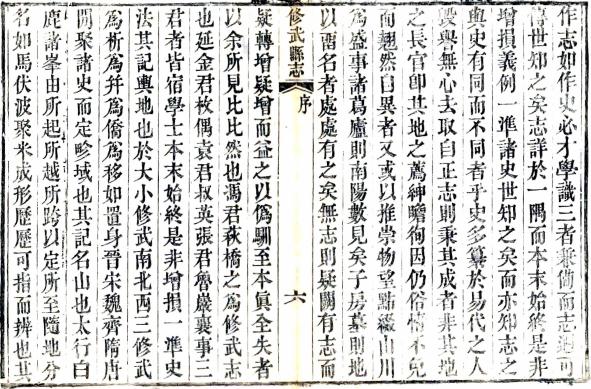 作志如作史必才學識三者兼備而志迺可
傳世知之矣志詳於一隅而本末始終是非
增損義例一準諸史世知之矣而亦知志之
與史有同而不同者乎史多纂於易代之人
毀譽無心去取自正志則秉其成者非其地
之長官卽其地之薦紳瞻徇因仍俗情不免
而翹然自異者又或以推崇物望點綴山川
為盛事諸葛廬則南陽數見矣子房墓則地
以畱名者處處有之矣無志則疑闕有志而
修武縣志
序
六
疑轉增疑增而益之以偽馴至本眞全失者
以余所見比比然也馮君萩橋之為修武志
也延金君枚偶袁君叔英張君魯巖襄事三
君者皆宿學士本末始終是非增損一準史
法其記輿地也於大小修武南北西三修武
為析為幷為僑為移如置身晉宋魏齊隋唐
間聚諸史而定畛域也其記名山也太行白
鹿諸峯由所起所越所跨以定所至隨地分
名如馬伏波聚米成形歷歷可指而辨也其